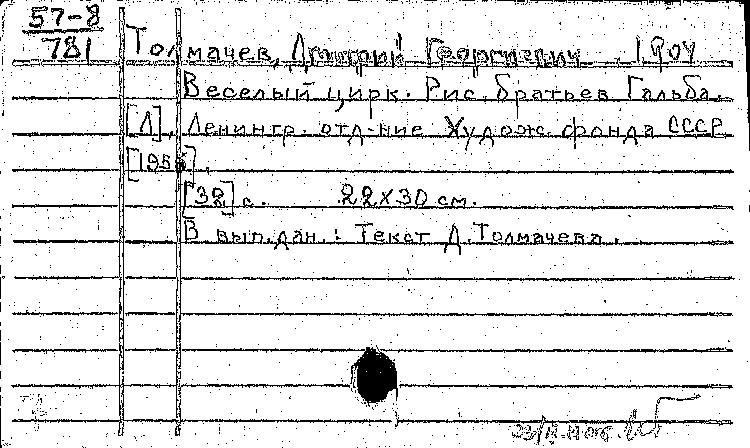 57-8
781
Толмачев, Дмитрий Георгиевич, 1904
Веселый цирк. Рис. братьев Гальба.
[Л], Ленингр. отд-ние Худож. фонда СССР
[1956].
[32] с. 22х30 см.
В вып. дан.: Текст Д. Толмачева.